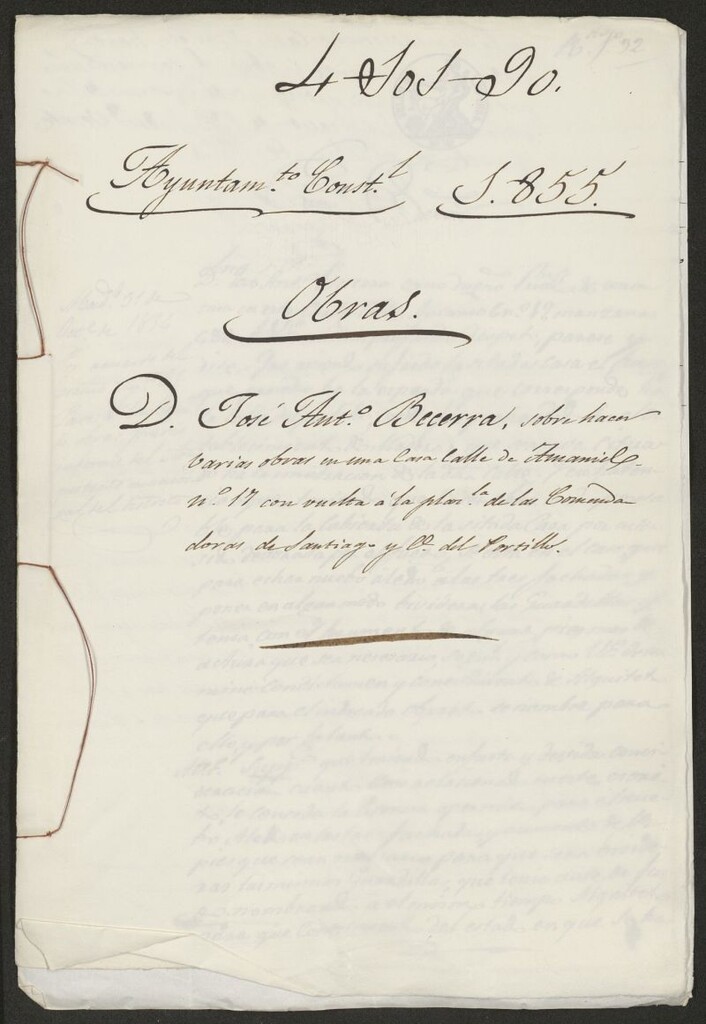 4-101-90.
Ayuntam.to Const.l 1.855.
Obras.
D. José Ant.o Becerra, sobre hacer
varias obras en una Casa Calle de Amaniel
n.o 17 con vuelta á la plaz.la de las Comenda
doras de Santiago y C.a del Portillo.